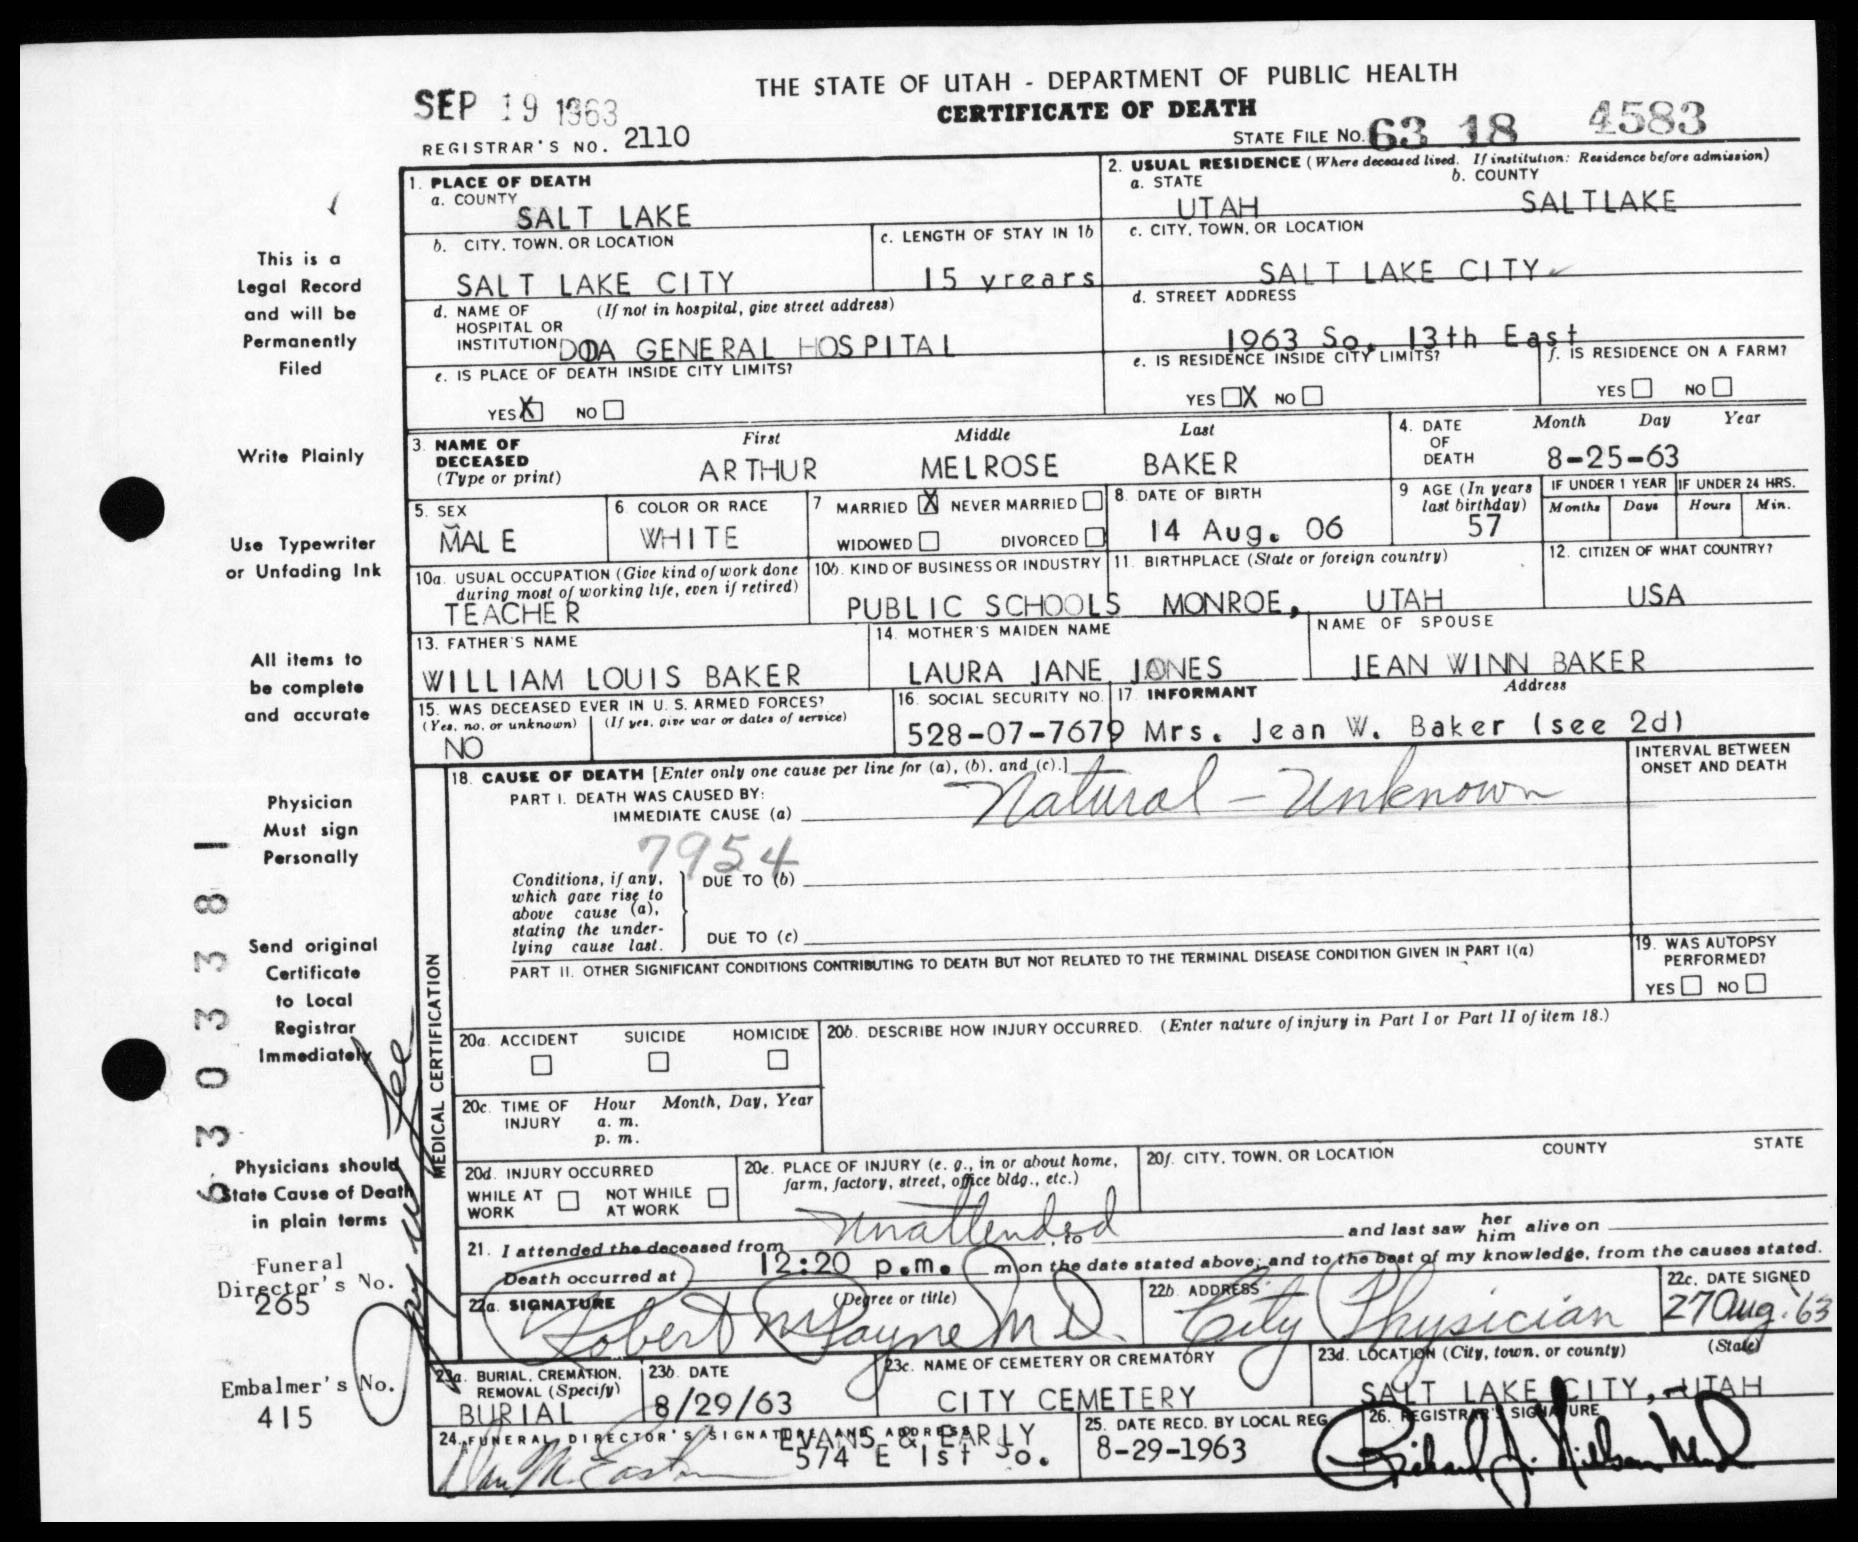 THE STATE OF UTAH - DEPARTMENT OF PUBLIC HEALTH
SEP 19 1963
CERTIFICATE OF DEATH
REGISTRAR'S NO. 2110
STATE FILE NO. 63 18 4583
1. PLACE OF DEATH
a. COUNTY
SALT LAKE
2. USUAL RESIDENCE (Where deceased lived. If institution: Residence before admission)
a. STATE b. COUNTY
UTAH SALTLAKE
b. CITY, TOWN, OR LOCATION
SALT LAKE CITY
c. LENGTH OF STAY IN 1b
15 yrears
c. CITY, TOWN, OR LOCATION
SALT LAKE CITY
d. NAME OF HOSPITAL OR INSTITUTION (If not in hospital, give street address)
DOA GENERAL HOSPITAL
d. STREET ADDRESS
1963 So. 13th East
e. IS PLACE OF DEATH INSIDE CITY LIMITS?
YES X NO
e. IS RESIDENCE INSIDE CITY LIMITS?
YES X NO
f. IS RESIDENCE ON A FARM?
YES NO
3. NAME OF DECEASED (Type or print)
First Middle Last
ARTHUR MELROSE BAKER
4. DATE OF DEATH
Month Day Year
8-25-63
5. SEX
MALE
6. COLOR OR RACE
WHITE
7 MARRIED X NEVER MARRIED
WIDOWED DIVORCED
8. DATE OF BIRTH
14 Aug. 06
9 AGE (In years last birthday)
57
IF UNDER 1 YEAR
Months Days
IF UNDER 24 HRS.
Hours Min.
10a. USUAL OCCUPATION (Give kind of work done during most of working life, even if retired)
TEACHER
10b. KIND OF BUSINESS OR INDUSTRY
PUBLIC SCHOOLS
11. BIRTHPLACE (State or foreign country)
MONROE, UTAH
12. CITIZEN OF WHAT COUNTRY?
USA
13. FATHER'S NAME
WILLIAM LOUIS BAKER
14. MOTHER'S MAIDEN NAME
LAURA JANE JONES
NAME OF SPOUSE
JEAN WINN BAKER
15. WAS DECEASED EVER IN U.S. ARMED FORCES?
(Yes, no, or unknown) (If yes, give war or dates of service)
NO
16. SOCIAL SECURITY NO.
528-07-7679
17. INFORMANT Address
Mrs. Jean W. Baker (see 2d)
18. CAUSE OF DEATH [Enter only one cause per line for (a), (b), and (c).]
PART I. DEATH WAS CAUSED BY:
IMMEDIATE CAUSE (a) Natural - Unknown
7954
Conditions, if any, which gave rise to above cause (a), stating the underlying cause last.
DUE TO (b)
DUE TO (c)
INTERVAL BETWEEN ONSET AND DEATH
PART II. OTHER SIGNIFICANT CONDITIONS CONTRIBUTING TO DEATH BUT NOT RELATED TO THE TERMINAL DISEASE CONDITION GIVEN IN PART I(a)
19. WAS AUTOPSY PERFORMED?
YES NO
MEDICAL CERTIFICATION
20a. ACCIDENT SUICIDE HOMICIDE
20b. DESCRIBE HOW INJURY OCCURRED. (Enter nature of injury in Part I or Part II of item 18.)
20c. TIME OF INJURY
Hour Month, Day, Year
a. m.
p. m.
20d. INJURY OCCURRED
WHILE AT WORK NOT WHILE AT WORK
20e. PLACE OF INJURY (e. g., in or about home, farm, factory, street, office bldg., etc.)
20f. CITY, TOWN, OR LOCATION COUNTY STATE
21. I attended the deceased from Unattended to and last saw her him alive on
Death occurred at 12:20 p.m. m on the date stated above; and to the best of my knowledge, from the causes stated.
22a. SIGNATURE (Degree or title)
Robert M Payne M.D.
22b. ADDRESS
City Physician
22c. DATE SIGNED
27 Aug. '63
23a. BURIAL, CREMATION, REMOVAL (Specify)
BURIAL
23b. DATE
8/29/63
23c. NAME OF CEMETERY OR CREMATORY
CITY CEMETERY
23d. LOCATION (City, town, or county) (State)
SALT LAKE CITY, UTAH
24. FUNERAL DIRECTOR'S SIGNATURE AND ADDRESS
EVANS & EARLY
574 E 1st So.
25. DATE RECD. BY LOCAL REG.
8-29-1963
26. REGISTRAR'S SIGNATURE
This is a
Legal Record
and will be
Permanently
Filed
Write Plainly
Use Typewriter
or Unfading Ink
All items to
be complete
and accurate
Physician
Must sign
Personally
Send original
Certificate
to Local
Registrar
Immediately
Physicians should
State Cause of Death
in plain terms
Funeral
Director's No.
265
Embalmer's No.
415
6303381